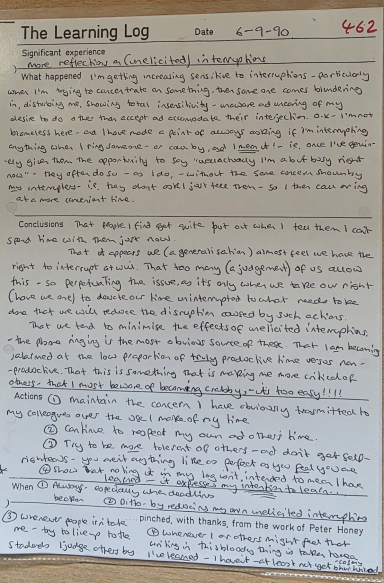 The Learning Log Date 6-9-90 462
Significant experience
more reflection on (unelicited) interruptions
What happened I'm getting increasing sensitive to interruptions - particularly
when I'm trying to concentrate on something, then someone comes blundering
in, disturbing me, showing total insensitivity - unaware and uncaring of my
desire to do other than accept and accomodate their interjection. O.K - I'm not
blameless here - and I have made a point of always asking if I'm interrupting
anything when I ring someone - or call by, and I mean it! - ie. once I've genuin-
ely given them the opportunity to say "well actually I'm a bit busy right
now" - they often do so - as I do, - without the same concern shown by
my interrupters - ie. they don't ask I just tell them - so I then call or ring
at a more convenient time.
Conclusions That people I find get quite put out when I tell them I can't
spend time with them just now.
That it appears we (a generalisation) almost feel we have the
right to interrupt at will. That too many (a judgement) of us allow
this - so perpetuating the issue, as it's only when we take our right
(have we one) to devote our time uninterrupted to what needs to be
done that we will reduce the disruption caused by such actions.
That we tend to minimise the effects of unelicited interruptions,
- the phone ringing is the most obvious source of these. That I am becoming
at the low proportion of truly productive time versus non-
-productive. That this is something that is making me more critical of
others - that I must beware of becoming crabby, - it's too easy!!!!
Actions ① Maintain the concern I have obviously transmitted to
my colleagues over the use I make of my time
② Continue to respect my own and others' time.
③ Try to be more tolerant of others - and don't get self-
righteous - you aren't anything like as perfect as you feel you are
④ Show that noting it in my log isn't intended to mean I have
learned - it expresses my intention to learn...
When ① Always - especially when deadlines
beckon ② Ditto - by reducing my own unelicited interruptions
③ Whenever people irritate pinched, with thanks, from the work of Peter Honey
me - try to live up to the ④ Whenever I or others might feel that
standards I judge others by writing in this bloody thing is taken to mean
I've learned - I haven't - at least not yet